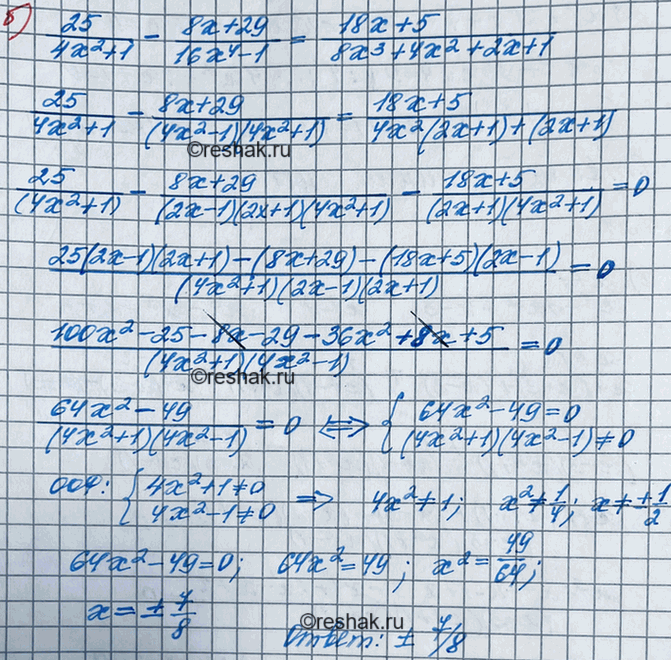 б) 25/(4x²+1) - (8x+29)/(16x⁴-1) = (18x+5)/(8x³+4x²+2x+1)
25/(4x²+1) - (8x+29)/((4x²-1)(4x²+1)) = (18x+5)/(4x²(2x+1)+(2x+1))
©reshak.ru
25/(4x²+1) - (8x+29)/((2x-1)(2x+1)(4x²+1)) - (18x+5)/((2x+1)(4x²+1)) = 0
(25(2x-1)(2x+1)-(8x+29)-(18x+5)(2x-1))/((4x²+1)(2x-1)(2x+1)) = 0
(100x²-25-8x-29-36x²+8x+5)/((4x²+1)(4x²-1)) = 0
©reshak.ru
(64x²-49)/((4x²+1)(4x²-1)) = 0 ⟺ { 64x²-49=0
(4x²+1)(4x²-1)≠0
ООУ: { 4x²+1≠0
4x²-1≠0 ⟹ 4x²≠1; x²≠1/4; x≠±1/2
64x²-49=0; 64x²=49; x²=49/64;
x=±7/8
©reshak.ru
Ответ: ± 7/8